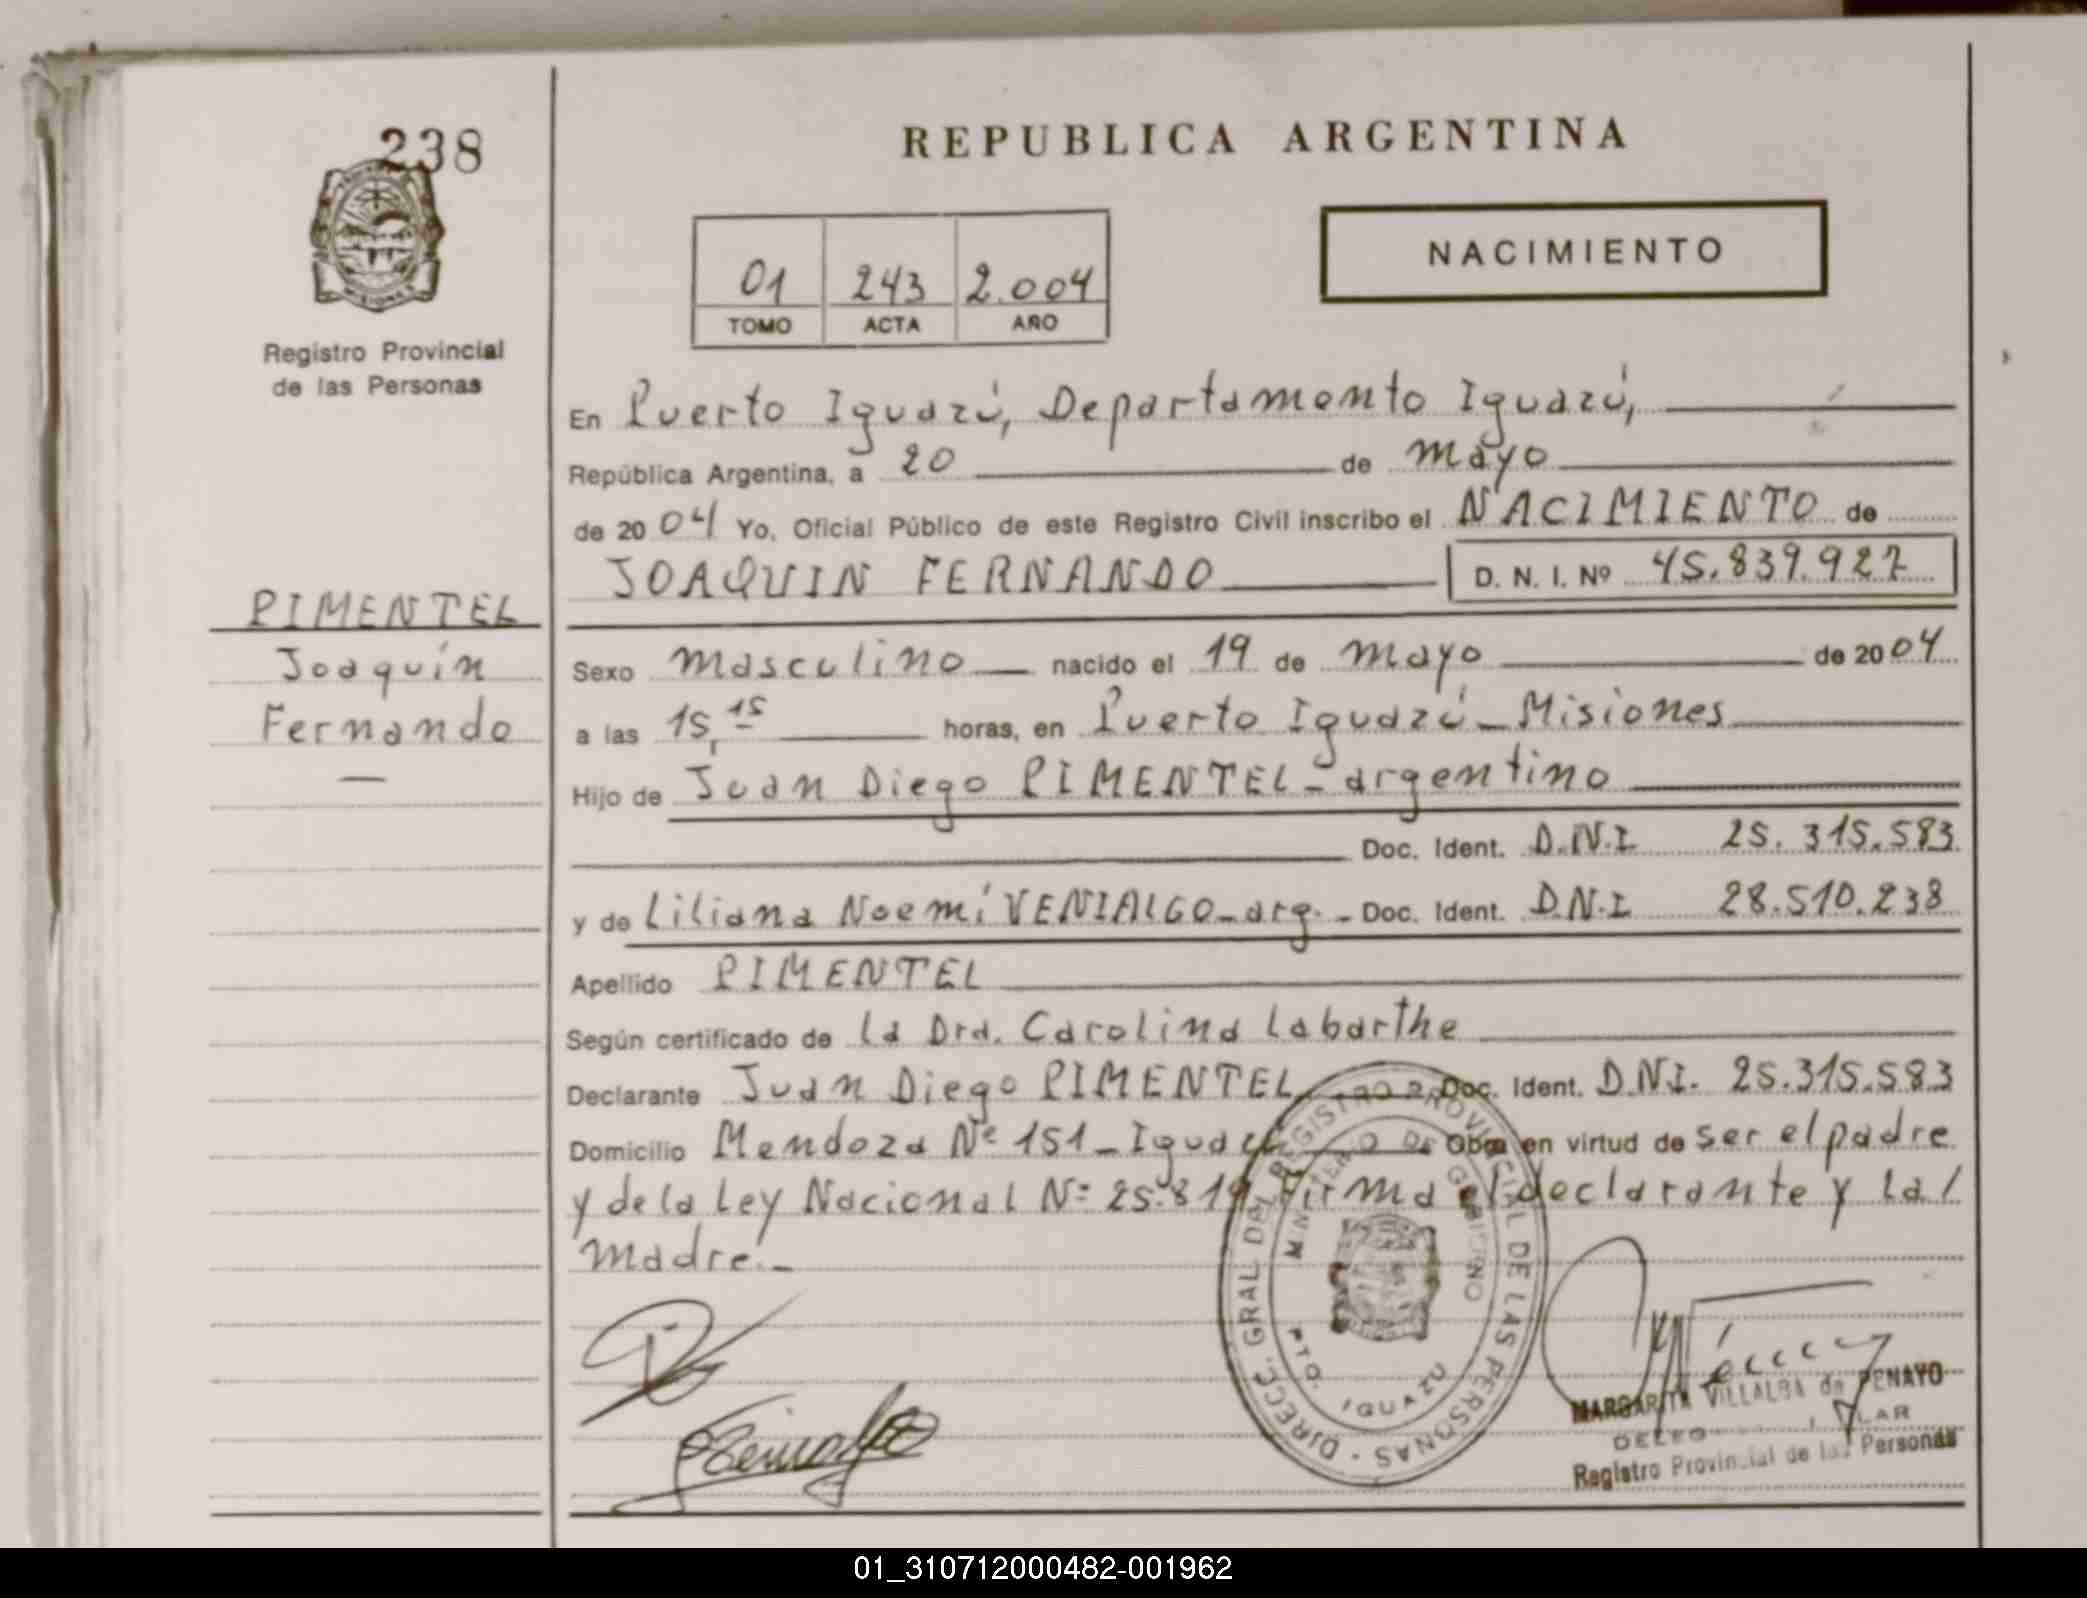 238
REPUBLICA ARGENTINA
NACIMIENTO
01 243 2.004
TOMO ACTA AÑO
MISIONES
Registro Provincial
de las Personas
En Puerto Iguazú, Departamento Iguazú,
República Argentina, a 20 de mayo
de 2004 Yo, Oficial Público de este Registro Civil inscribo el NACIMIENTO de
JOAQUIN FERNANDO D. N. I. Nº 45.839.927
PIMENTEL
Joaquín
Fernando
Sexo masculino nacido el 19 de mayo de 2004
a las 15,15 horas, en Puerto Iguazú - Misiones
Hijo de Juan Diego PIMENTEL - argentino
Doc. Ident. D.N.I 25.315.583
y de Liliana Noemí VENIALGO - arg. - Doc. Ident. D.N.I 28.510.238
Apellido PIMENTEL
Según certificado de la Dra. Carolina Labarthe
Declarante Juan Diego PIMENTEL Doc. Ident. D.N.I. 25.315.583
Domicilio Mendoza Nº 151 - Iguazú Obra en virtud de ser el padre
y de la Ley Nacional Nº 25.819 Firma el declarante y la /
madre. -
DIRECC. GRAL DEL REGISTRO PROVINCIAL DE LAS PERSONAS
MINISTERIO DE GOBIERNO
PTO. IGUAZU
MARGARITA VILLALBA de PENAYO
Registro Provincial de las Personas
01_310712000482-001962